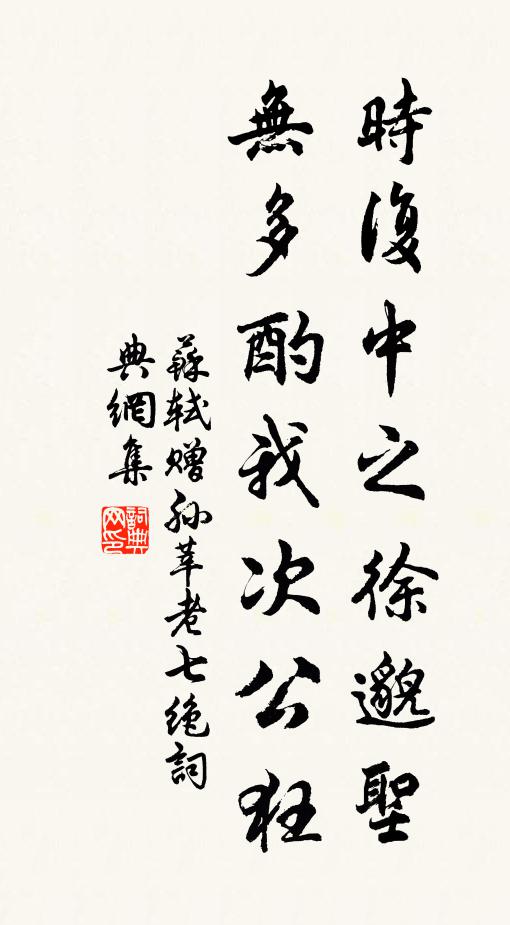 時復中之徐邈聖
無多酌我次公狂
蘇軾贈孙莘老七絶詞
典網集
詞典
网印